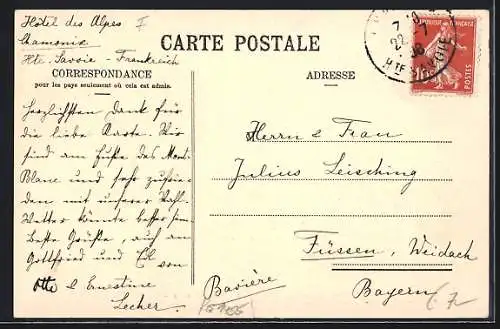 Hôtel des Alpes I
Chamonix
Hte. Savoie - Frankreich
CARTE POSTALE
CORRESPONDANCE
pour les pays seulement où cela est admis.
ADRESSE
Herzlichsten Dank für
die liebe Karte. Wir
sind am Fuße des Mont
Blanc und sehr zufrie-
den mit unserer Wahl.
Wetter könnte besser sein.
Beste Grüße, auch an
Gottfried und El von
Otto & Ernestine
Lecher.
Herrn & Frau
Julius Leisching
Füssen, Weidach
Bavière
Bayern
7
REPUBLIQUE FRANÇAISE
POSTES